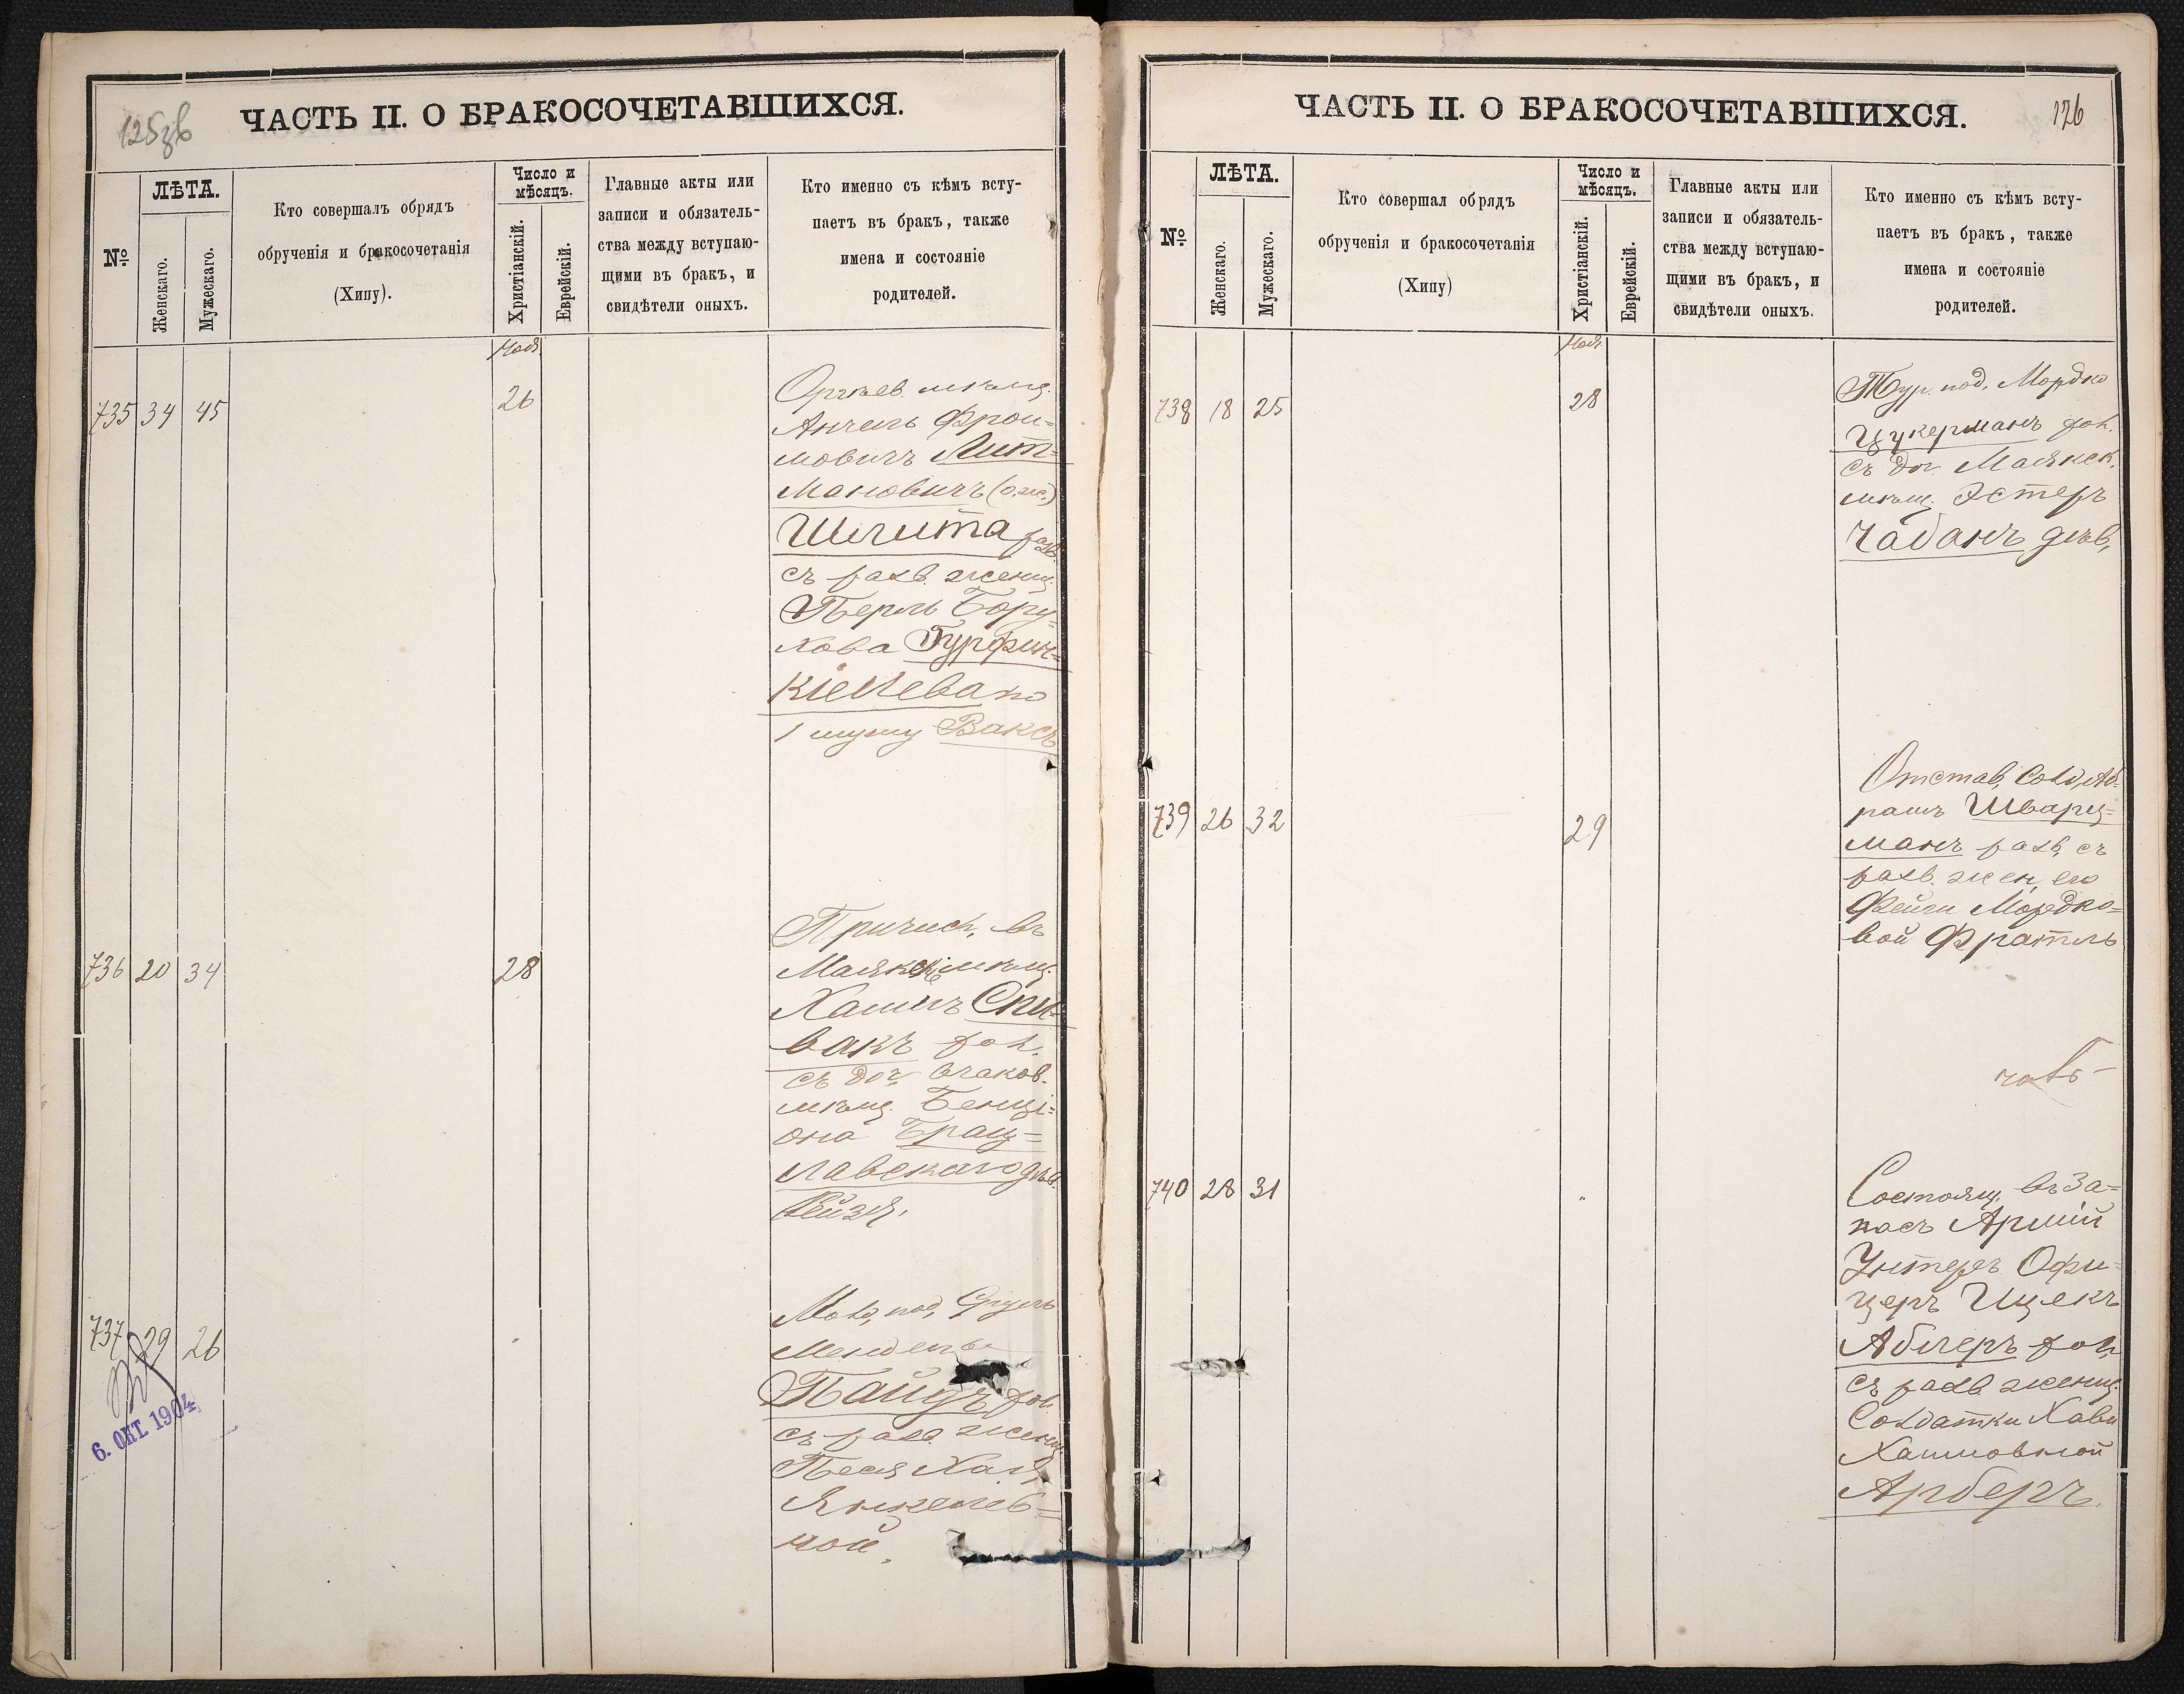 125зв
ЧАСТЬ II. О БРАКОСОЧЕТАВШИХСЯ.
№
ЛѢТА.
Женскаго.
Мужескаго.
Кто совершалъ обрядъ
обрученія и бракосочетанія
(Хипу).
Число и
мѣсяцъ.
Христіанскій.
Еврейскій.
Главные акты или
записи и обязатель-
ства между вступаю-
щими въ бракъ, и
свидѣтели оныхъ.
Кто именно съ кѣмъ всту-
паетъ въ бракъ, также
имена и состояніе
родителей.
Ноя.
735 34 45
26
Оргѣев. мѣщ.
Анчель Фрои-
мовичъ Лит-
мановичъ (о.же.)
Шлита разв.
съ разв. женщ.
Перль Бору-
хова Гурфин-
келева по
1 мужу Ваксъ
736 20 34
28
Причисл. въ
Маякск. мѣщ.
Хаимъ Спи-
вакъ хол.
съ доч. Очаков.
мѣщ. Бенці-
она Брац-
лавскаго дѣв.
Рейзя.
737 29 26
"
Мог. под. Сруль
Менделъ
Пайдъ хол.
съ разв. женщ.
Песя Хая
Янкелев-
ной.
6. ОКТ. 1904
126
ЧАСТЬ II. О БРАКОСОЧЕТАВШИХСЯ.
№
ЛѢТА.
Женскаго.
Мужескаго.
Кто совершал обрядъ
обрученія и бракосочетанія
(Хипу)
Число и
мѣсяцъ.
Христіанскій.
Еврейскій.
Главные акты или
записи и обязатель-
ства между вступаю-
щими въ бракъ, и
свидѣтели оныхъ.
Кто именно съ кѣмъ всту-
паетъ въ бракъ, также
имена и состояніе
родителей.
Ноя.
738 18 25
28
Тур. под. Мордко
Цукерманъ хол.
съ доч. Маякск.
мѣщ. Эстеръ
Чабанъ дѣв,
739 26 32
29
Отстав. Солд. Аб-
рамъ Шварц-
манъ разв. съ
разв. жен. его
Фейги Мордко-
вой Фратль
740 28 31
"
Состоящ. въ За-
пасъ Арміи
Унтеръ Офи-
церъ Ицекъ
Аблеръ хол.
съ разв. женщ.
Солдатки Хави
Хаимовной
Арберъ.